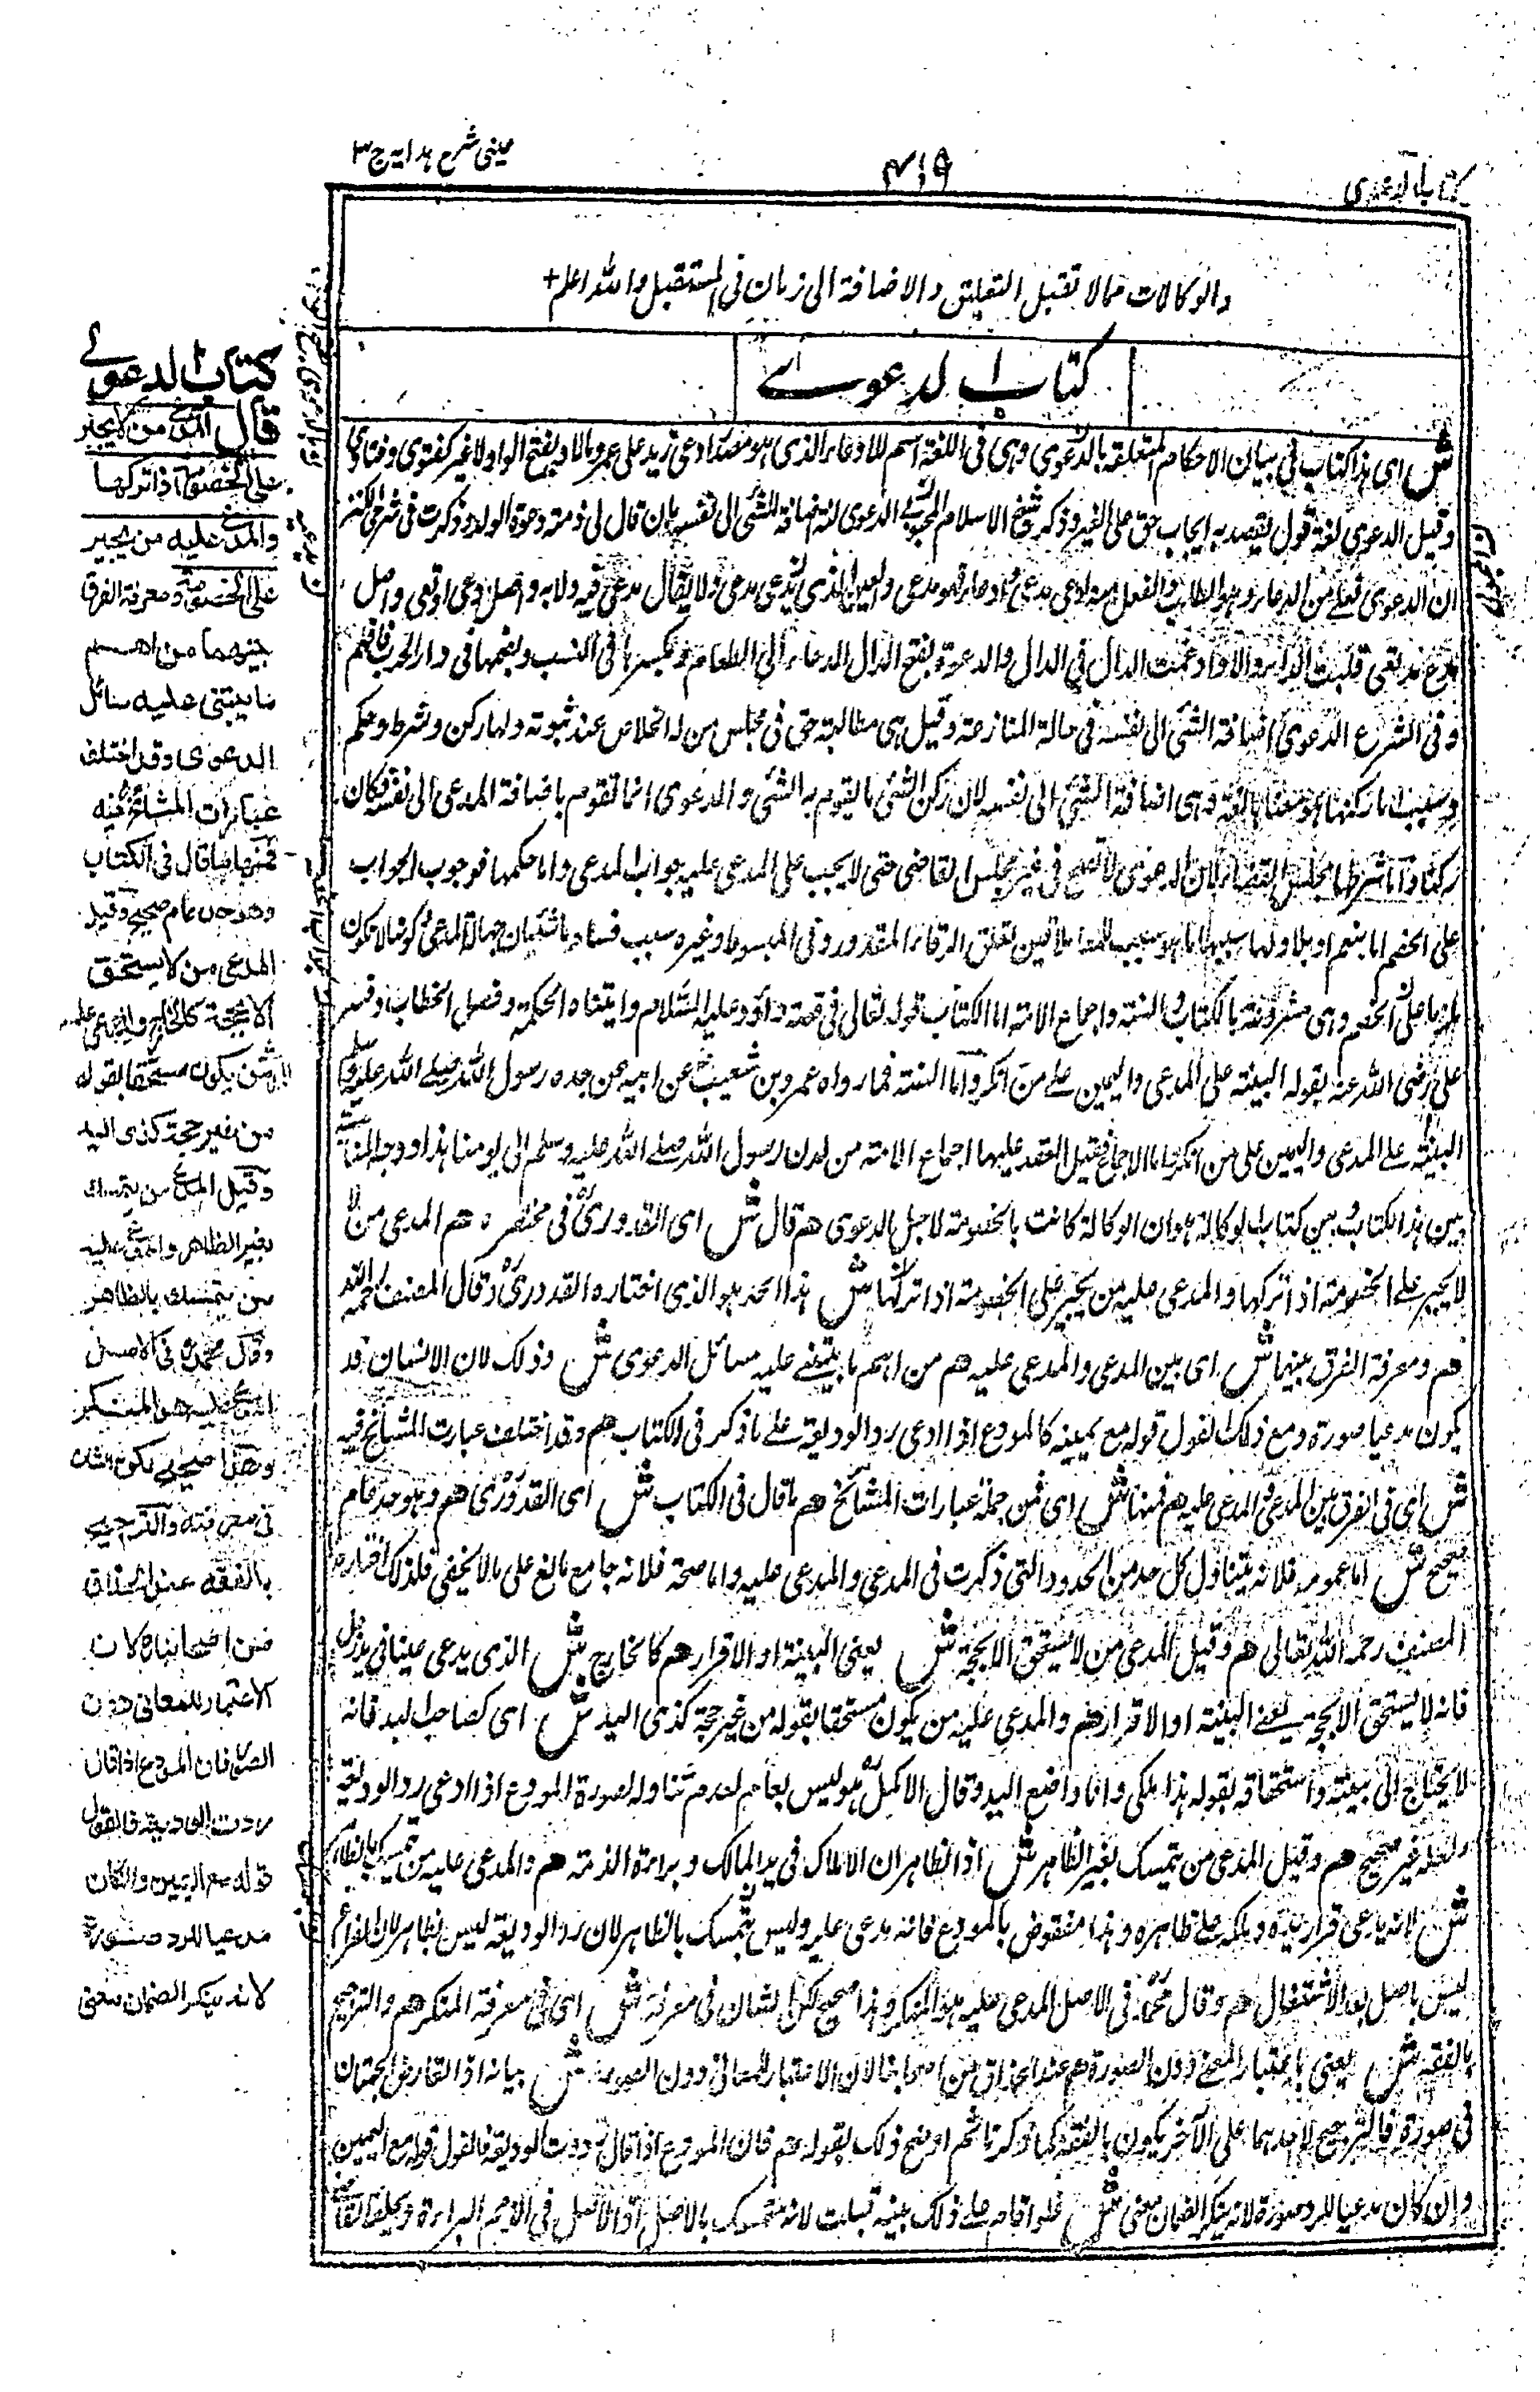 كتاب الدعوى
٤١٩
عينى شرح هدايه ج ٣
والوكالات مما لا تقبل التعليق والاضافة الى زمان فى المستقبل والله اعلم +
كتاب الدعوے
ش اى هذا كتاب فى بيان الاحكام المتعلقة بالدعوى وهى فى اللغة اسم للادعاء الذى هو مصدر ادعى زيد على عمرو مالا وبفتح الواو لا غير كفتوى وفتاوى
وقيل الدعوى لغة قول يقصد به ايجاب حق على الغير وذكر شيخ الاسلام الدعوى لغة اضافة الشئ الى نفسه بان قال لى ذمته ودعوة الولد وذكرت فى شرحى للكنز
ان الدعوى فعلى من الدعاء وهو الطلب والفعل منه ادعى يدعى ادعاء فهو مدعى والعين الذى يدعى مدعى ولا يقال مدعى فيه ولا به واصل ادعى ادتعى واصل
قلبت التاء دالا وادغمت الدال فى الدال والدعوة بفتح الدال الدعاء الى الطعام وبكسرها فى النسب وبضمها فى دار الحرب فافهم
وفى الشرع الدعوى اضافة الشئ الى نفسه فى حالة المنازعة وقيل هى مطالبة حق فى مجلس من له الخلاص عند ثبوته ولها ركن وشرط وحكم
وسبب اما ركنها هو معناها لغة وهى اضافة الشئ الى نفسه لان ركن الشئ ما يقوم به الشئ والدعوى انما تقوم باضافة المدعى الى نفسه فكان
ركنا واما شرطها مجلس القضاء لان الدعوى لا تصح فى غير مجلس القاضى حتى لا يجب على المدعى عليه جواب المدعى واما حكمها فوجوب الجواب
على الخصم اما بنعم او بلا ولها سببها لتعلق البقاء المقدور وفى المبسوط وغيره سبب فسادها شيئان جهالة المدعى وكونها لا تكون
ملزما على الخصم وهى مشروعة بالكتاب والسنة واجماع الامة اما الكتاب قوله تعالى فى قصة داؤد عليه السلام واتيناه الحكمة وفصل الخطاب وفسر
على رضى الله عنه بقوله البينة على المدعى واليمين على من انكر واما السنة فما رواه عمرو بن شعيب عن ابيه عن جده رسول الله صلے الله عليه وسلم
البينة على المدعى واليمين على من انكر واما الاجماع فقيل انعقد عليها اجماع الامة من لدن رسول الله صلے الله عليه وسلم الى يومنا هذا ووجه المناسبة
بين هذا الكتاب وبين كتاب الوكالة هو ان الوكالة كانت بالخصومة لاجل الدعوى هم قال ش اى القدورى فى مختصره هم المدعى من
لا يجبر على الخصومة اذا تركها والمدعى عليه من يجبر على الخصومة اذا تركها ش هذا الحد هو الذى اختاره القدورى وقال المصنف رحمه الله
هم ومعرفة الفرق بينهما ش اى بين المدعى والمدعى عليه هم من اهم ما يبتنے عليه مسائل الدعوى ش وذلك لان الانسان قد
يكون مدعيا صورة ومع ذلك القول قوله مع يمينه كالمودع اذا ادعى رد الوديعة على ما ذكر فى الكتاب هم وقد اختلف عبارت المشائخ فيه
ش اى فى الفرق بين المدعى والمدعى عليه هم فمنها ش اى فمن جملة عبارات المشائخ هم ما قال فى الكتاب ش اى القدورى هم وهو حد عام
صحيح ش اما عمومه فلانه يتناول كل حد من الحدود التى ذكرت فى المدعى والمدعى عليه واما صحته فلانه جامع مانع على ما لا يخفى فلذلك اختاره
المصنف رحمه الله تعالى هم وقيل المدعى من لا يستحق الا بحجة ش يعنى البينة او الاقرار هم كالخارج ش الذى يدعى عينا فى يد رجل
فانه لا يستحق الا بحجة يعنے البينة او الاقرار هم والمدعى عليه من يكون مستحقا بقوله من غير حجة كذى اليد ش اى كصاحب اليد فانه
لا يحتاج الى بينة واستحقاقه بقوله هذا ملكى وانا واضع اليد وقال الاكمل هو ليس بعام لعدم تناوله صورة المودع اذا ادعى رد الوديعة
ولعله غير صحيح هم وقيل المدعى من يتمسك بغير الظاهر ش اذ الظاهر ان الاملاك فى يد المالك وبراءة الذمة هم والمدعى عليه من يتمسك بالظاهر
ش لانه يدعى قرار يده وملكه على ظاهره وهذا منقوض بالمودع فانه مدعى عليه وليس بتمسك بالظاهر لان رد الوديعة ليس بظاهر لان الفراغ
ليس باصل بعد الاشتغال هم وقال محمد فى الاصل المدعى عليه هو المنكر وهذا صحيح لكن الشان فى معرفته ش اى فى معرفة المنكر هم والترجيح
بالفقه ش يعنى باعتبار المعنے دون الصورة هم عند الحذاق من اصحابنا لان الاعتبار للمعانى دون الصور ش بيانه اذا تعارض الجهتان
فى صورة فالترجيح لاحدهما على الآخر يكون بالفقه كما ذكرنا ثم اوضح ذلك بقوله هم فان المودع اذا قال رددت الوديعة فالقول قوله مع اليمين
وان كان مدعيا للرد صورة لانه ينكر الضمان معنى ش فلو اقام على ذلك بينة قبلت لانه متمسك بالاصل اذ الاصل فى الذمم البراءة ويحلف القاضى
كتاب الدعوے
قال المدعى من لا يجبر
على الخصومة اذا تركها
والمدعى عليه من يجبر
على الخصومة ومعرفة الفرق
بينهما من اهم
ما يبتنى عليه مسائل
الدعوى وقد اختلف
عبارات المشائخ فيه
فمنها ما قال فى الكتاب
وهو حد عام صحيح وقيل
المدعى من لا يستحق
الا بحجة كالخارج والمدعى عليه
من يكون مستحقا بقوله
من غير حجة كذى اليد
وقيل المدعى من يتمسك
بغير الظاهر والمدعى عليه
من يتمسك بالظاهر
وقال محمد فى الاصل
المدعى عليه هو المنكر
وهذا صحيح لكن الشان
فى معرفته والترجيح
بالفقه عند الحذاق
من اصحابنا لان
الاعتبار للمعانى دون
الصور فان المودع اذا قال
رددت الوديعة فالقول
قوله مع اليمين وان كان
مدعيا للرد صورة
لانه ينكر الضمان معنى